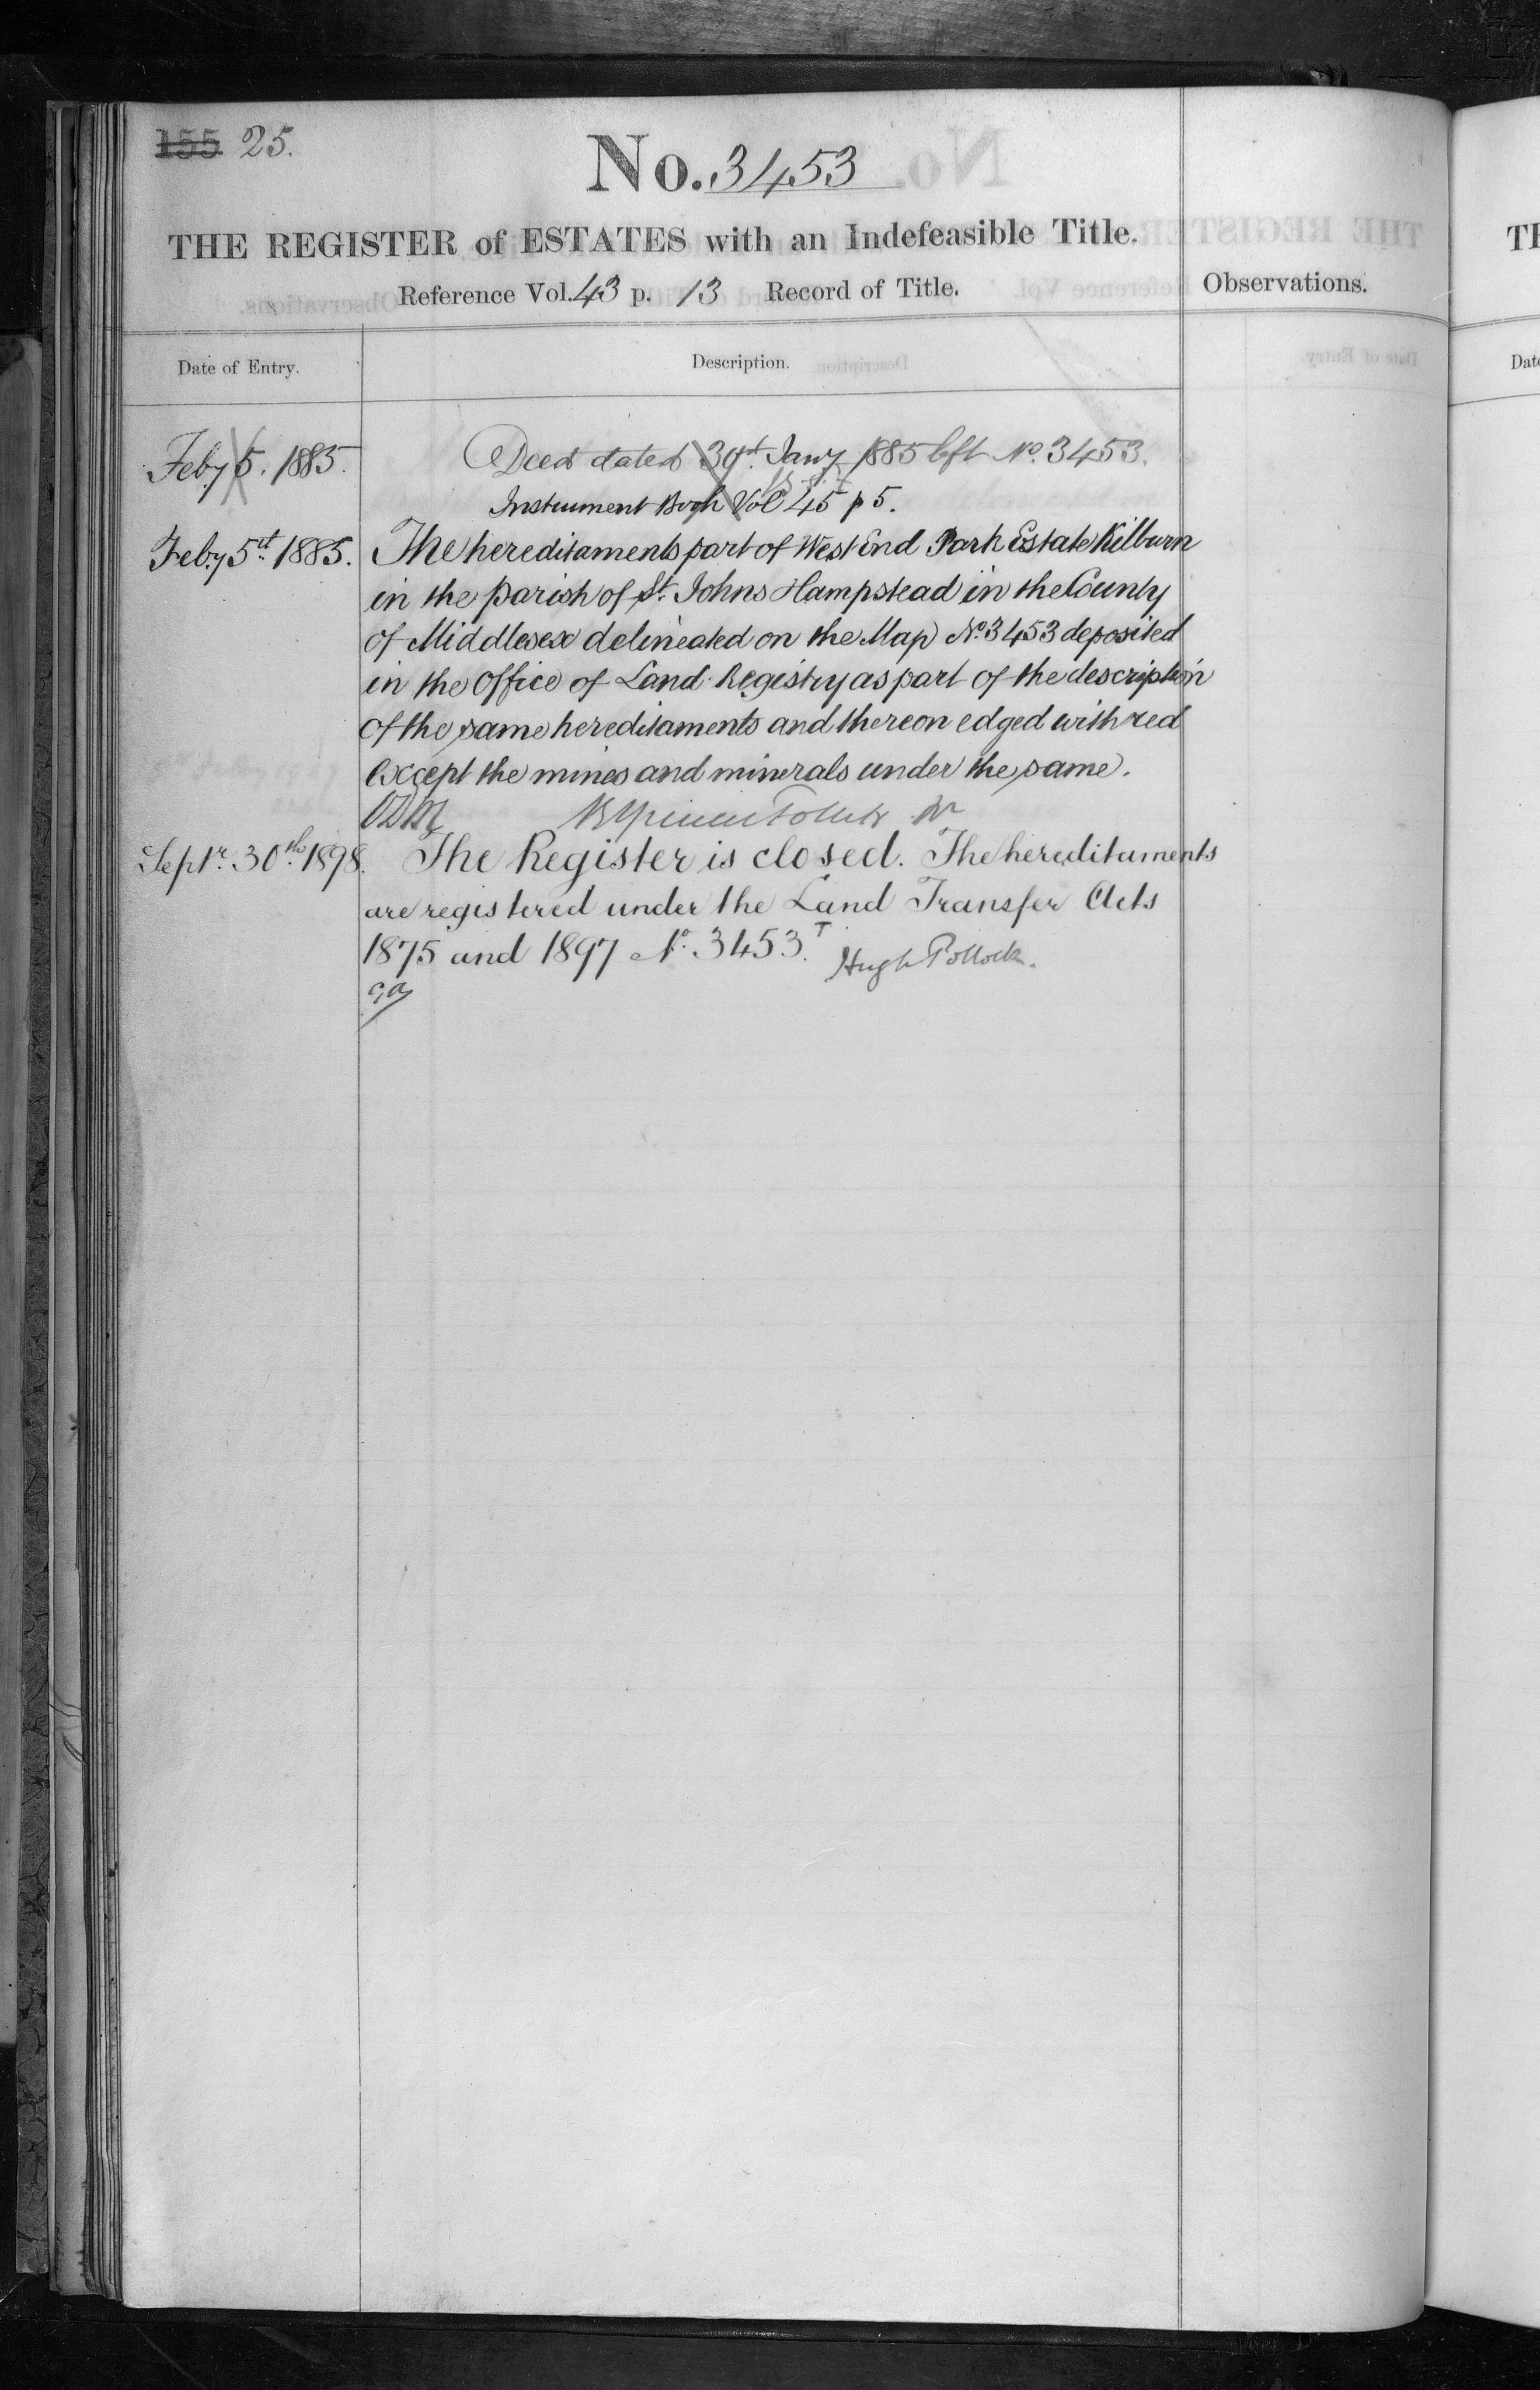 155 25.
No. 3453
THE REGISTER of ESTATES with an Indefeasible Title.
Reference Vol. 43 p. 13 Record of Title.
Observations.
Date of Entry.
Description.
Feby 5. 1885.
Deed dated Jany 1885 left No. 3453.
Instrument Book Vol 45 p 5.
Feby 5th 1885. The hereditaments part of West End Park Estate Kilburn
in the parish of St. Johns Hampstead in the County
of Middlesex delineated on the Map No. 3453 deposited
in the Office of Land Registry as part of the description
of the same hereditaments and thereon edged with red
except the mines and minerals under the same.
Septr. 30th 1898. The Register is closed. The hereditaments
are registered under the Land Transfer Acts
1875 and 1897 No. 3453.T Hugh Pollock.